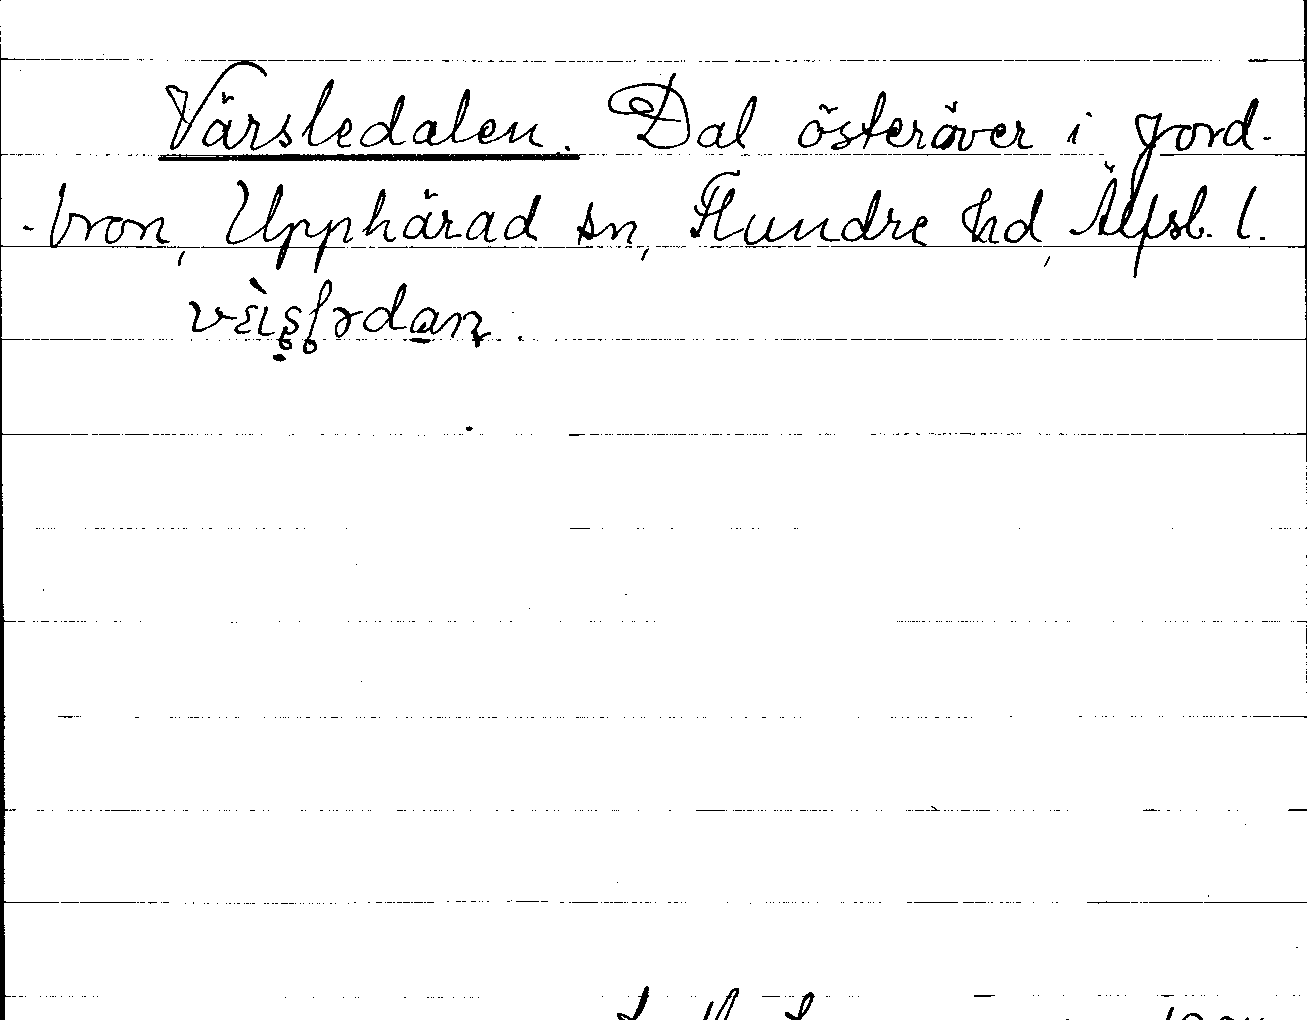 Värsledalen. Dal österöver i Jord-
-bron, Upphärad sn, Flundre hd, Älfsb. l.